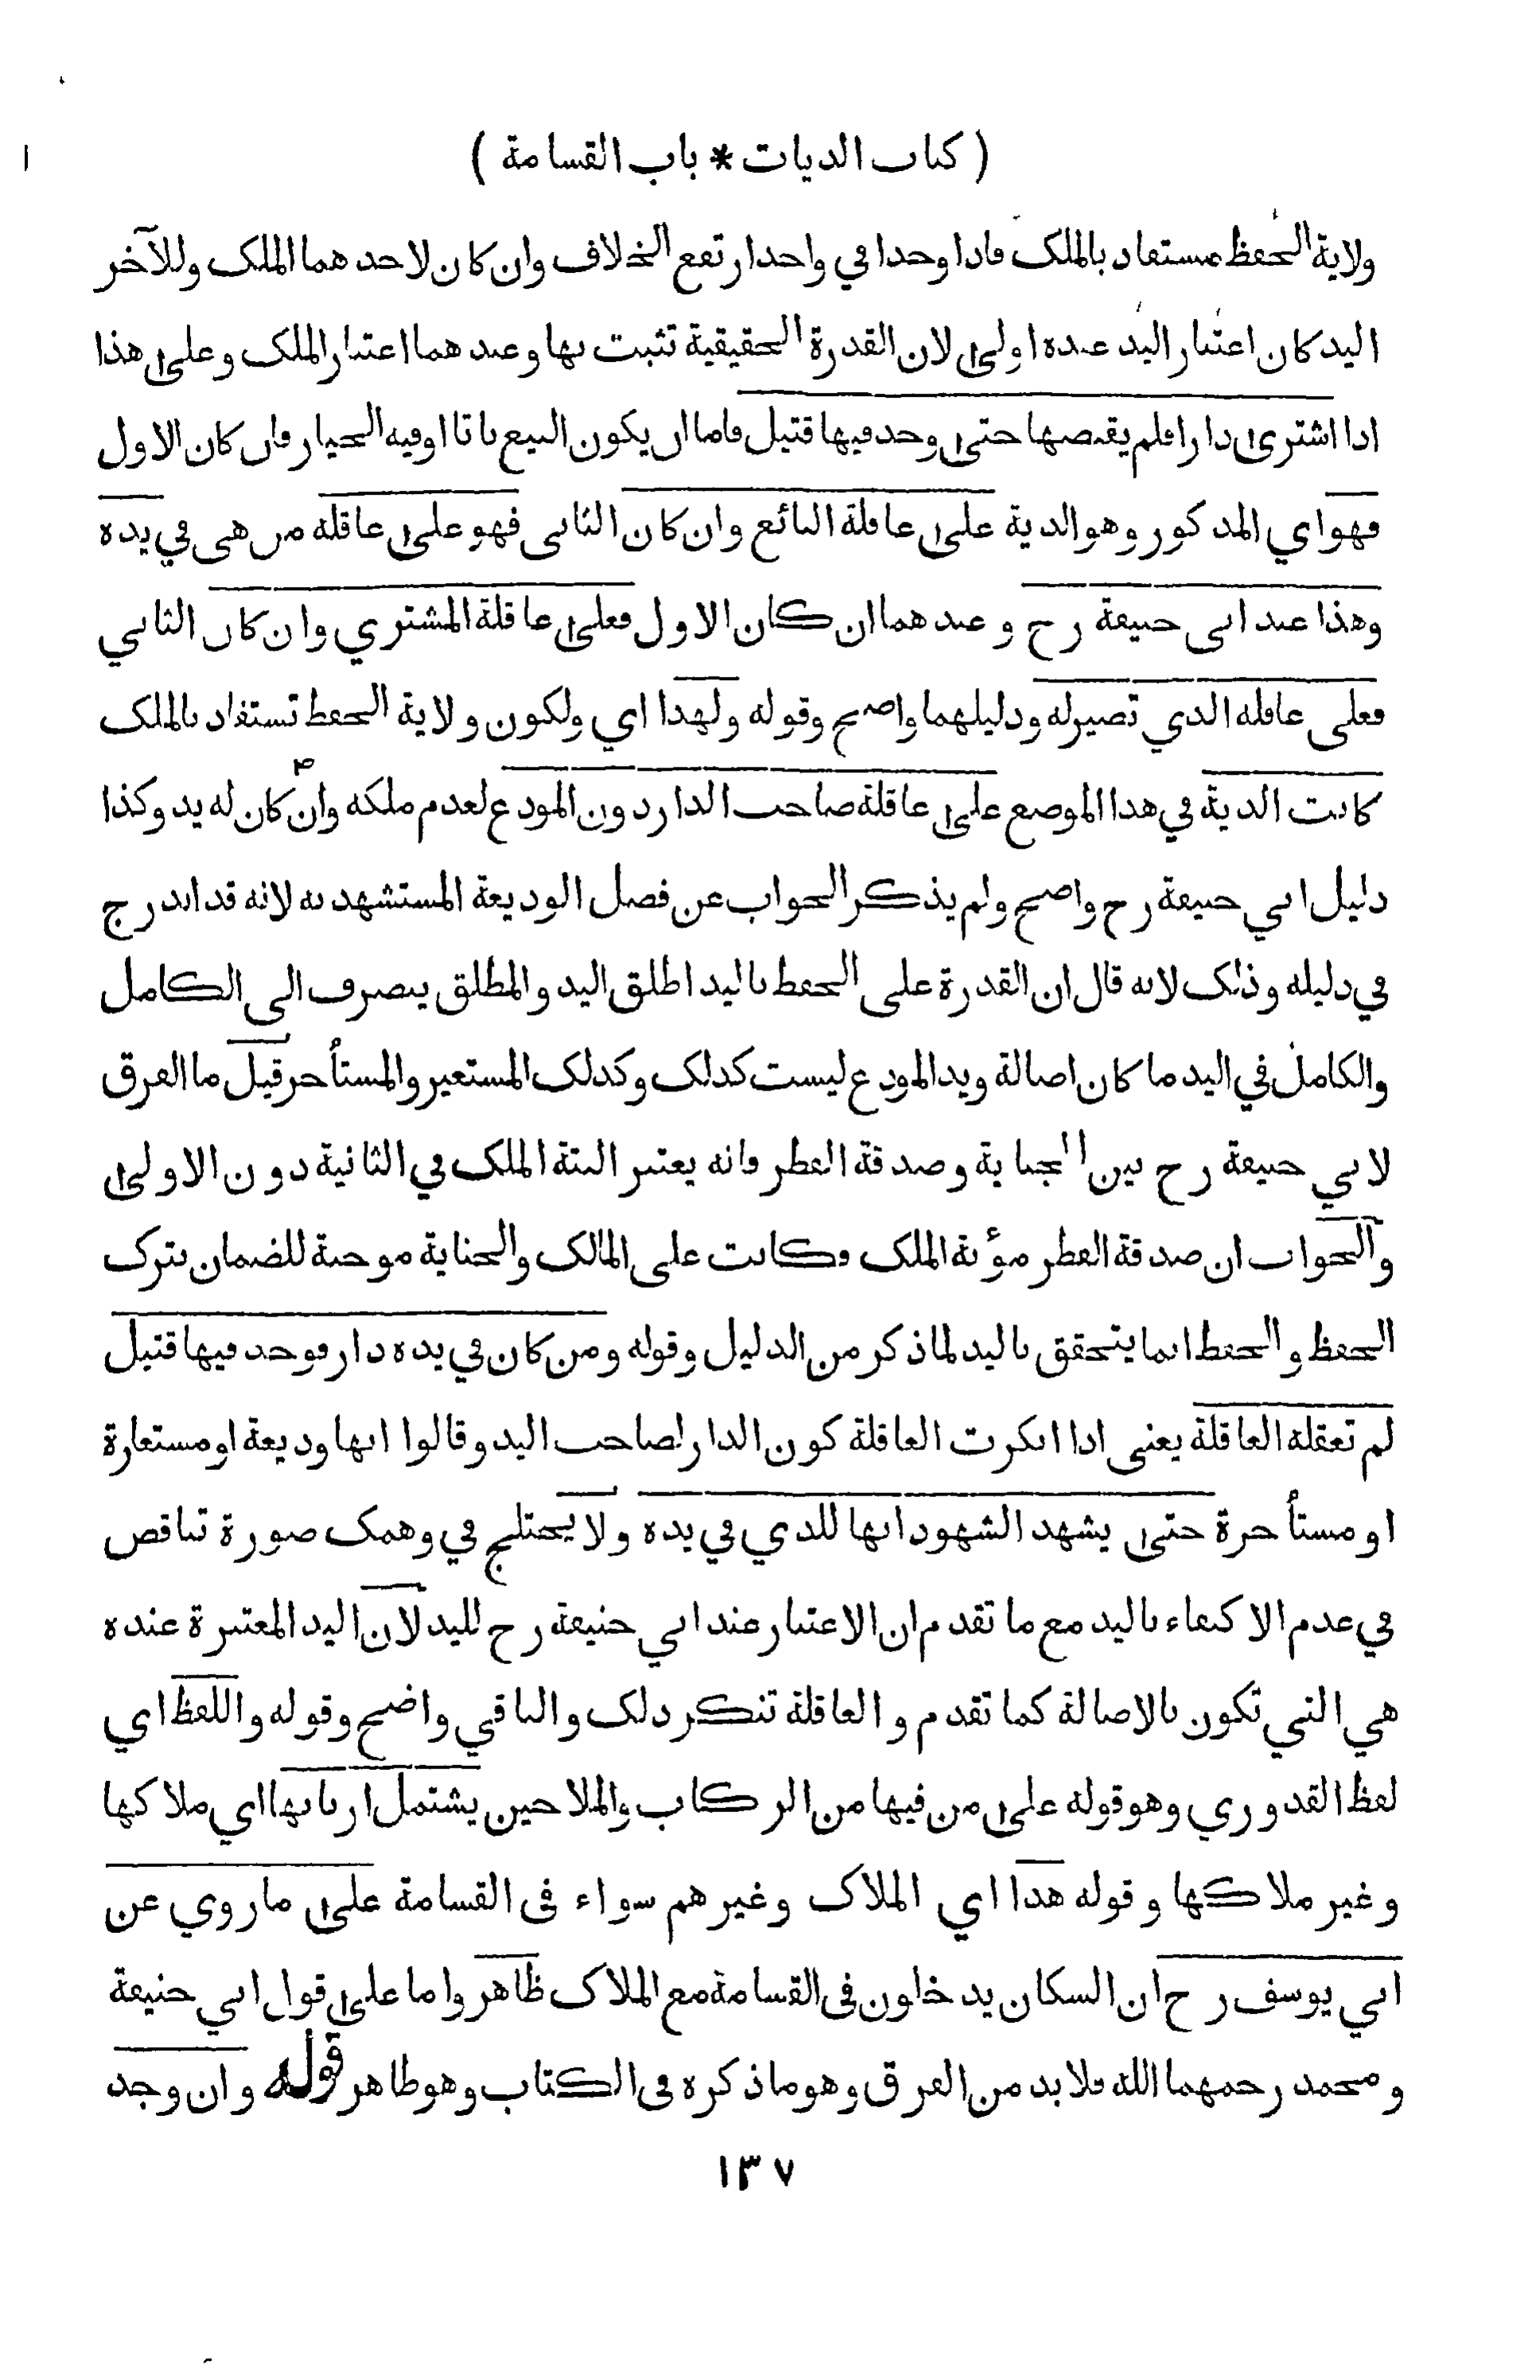 ( كتاب الديات * باب القسامة )
ولاية الحفظ مستفاد بالملك فاذا وجدا في واحد ارتفع الخلاف وان كان لاحدهما الملك وللآخر
اليد كان اعتبار اليد عنده اولى لان القدرة الحقيقية تثبت بها وعندهما اعتبار الملك وعلى هذا
اذا اشترى دارا فلم يقبضها حتى وجد فيها قتيل فاما ان يكون البيع باتا او فيه الخيار فان كان الاول
فهو اي المذكور وهو الدية على عاقلة البائع وان كان الثاني فهو على عاقلة من هي في يده
وهذا عند ابي حنيفة رح وعندهما ان كان الاول فعلى عاقلة المشتري وان كان الثاني
فعلى عاقلة الذي تصير له ودليلهما واضح وقوله ولهذا اي ولكون ولاية الحفظ تستفاد بالملك
كانت الدية في هذا الموضع على عاقلة صاحب الدار دون المودع لعدم ملكه وان كان له يد وكذا
دليل ابي حنيفة رح واضح ولم يذكر الجواب عن فصل الوديعة المستشهد به لانه قد اندرج
في دليله وذلك لانه قال ان القدرة على الحفظ باليد اطلق اليد والمطلق ينصرف الى الكامل
والكامل في اليد ما كان اصالة ويد المودع ليست كذلك وكذلك المستعير والمستأجر قيل ما الفرق
لابي حنيفة رح بين الجناية وصدقة الفطر فانه يعتبر البتة الملك في الثانية دون الاولى
والجواب ان صدقة الفطر مؤنة الملك فكانت على المالك والجناية موجبة للضمان بترك
الحفظ والحفظ انما يتحقق باليد لما ذكر من الدليل وقوله ومن كان في يده دار فوجد فيها قتيل
لم تعقله العاقلة يعني اذا انكرت العاقلة كون الدار لصاحب اليد وقالوا انها وديعة او مستعارة
او مستأجرة حتى يشهد الشهود انها للذي في يده ولا يختلج في وهمك صورة تناقض
في عدم الاكتفاء باليد مع ما تقدم ان الاعتبار عند ابي حنيفة رح لليد لان اليد المعتبرة عنده
هي التي تكون بالاصالة كما تقدم والعاقلة تنكر ذلك والباقي واضح وقوله واللفظ اي
لفظ القدوري وهو قوله على من فيها من الركاب والملاحين يشتمل اربابها اي ملاكها
وغير ملاكها وقوله هذا اي الملاك وغيرهم سواء فى القسامة على ما روي عن
ابي يوسف رح ان السكان يدخلون فى القسامة مع الملاك ظاهر واما على قول ابي حنيفة
ومحمد رحمهما الله فلا بد من الفرق وهو ما ذكره فى الكتاب وهو ظاهر قوله وان وجد
١٣٧